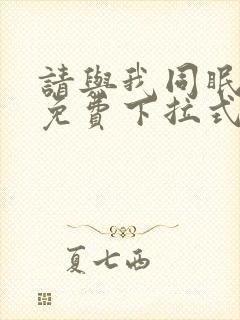 請與我同眠
免費下拉式
夏七西